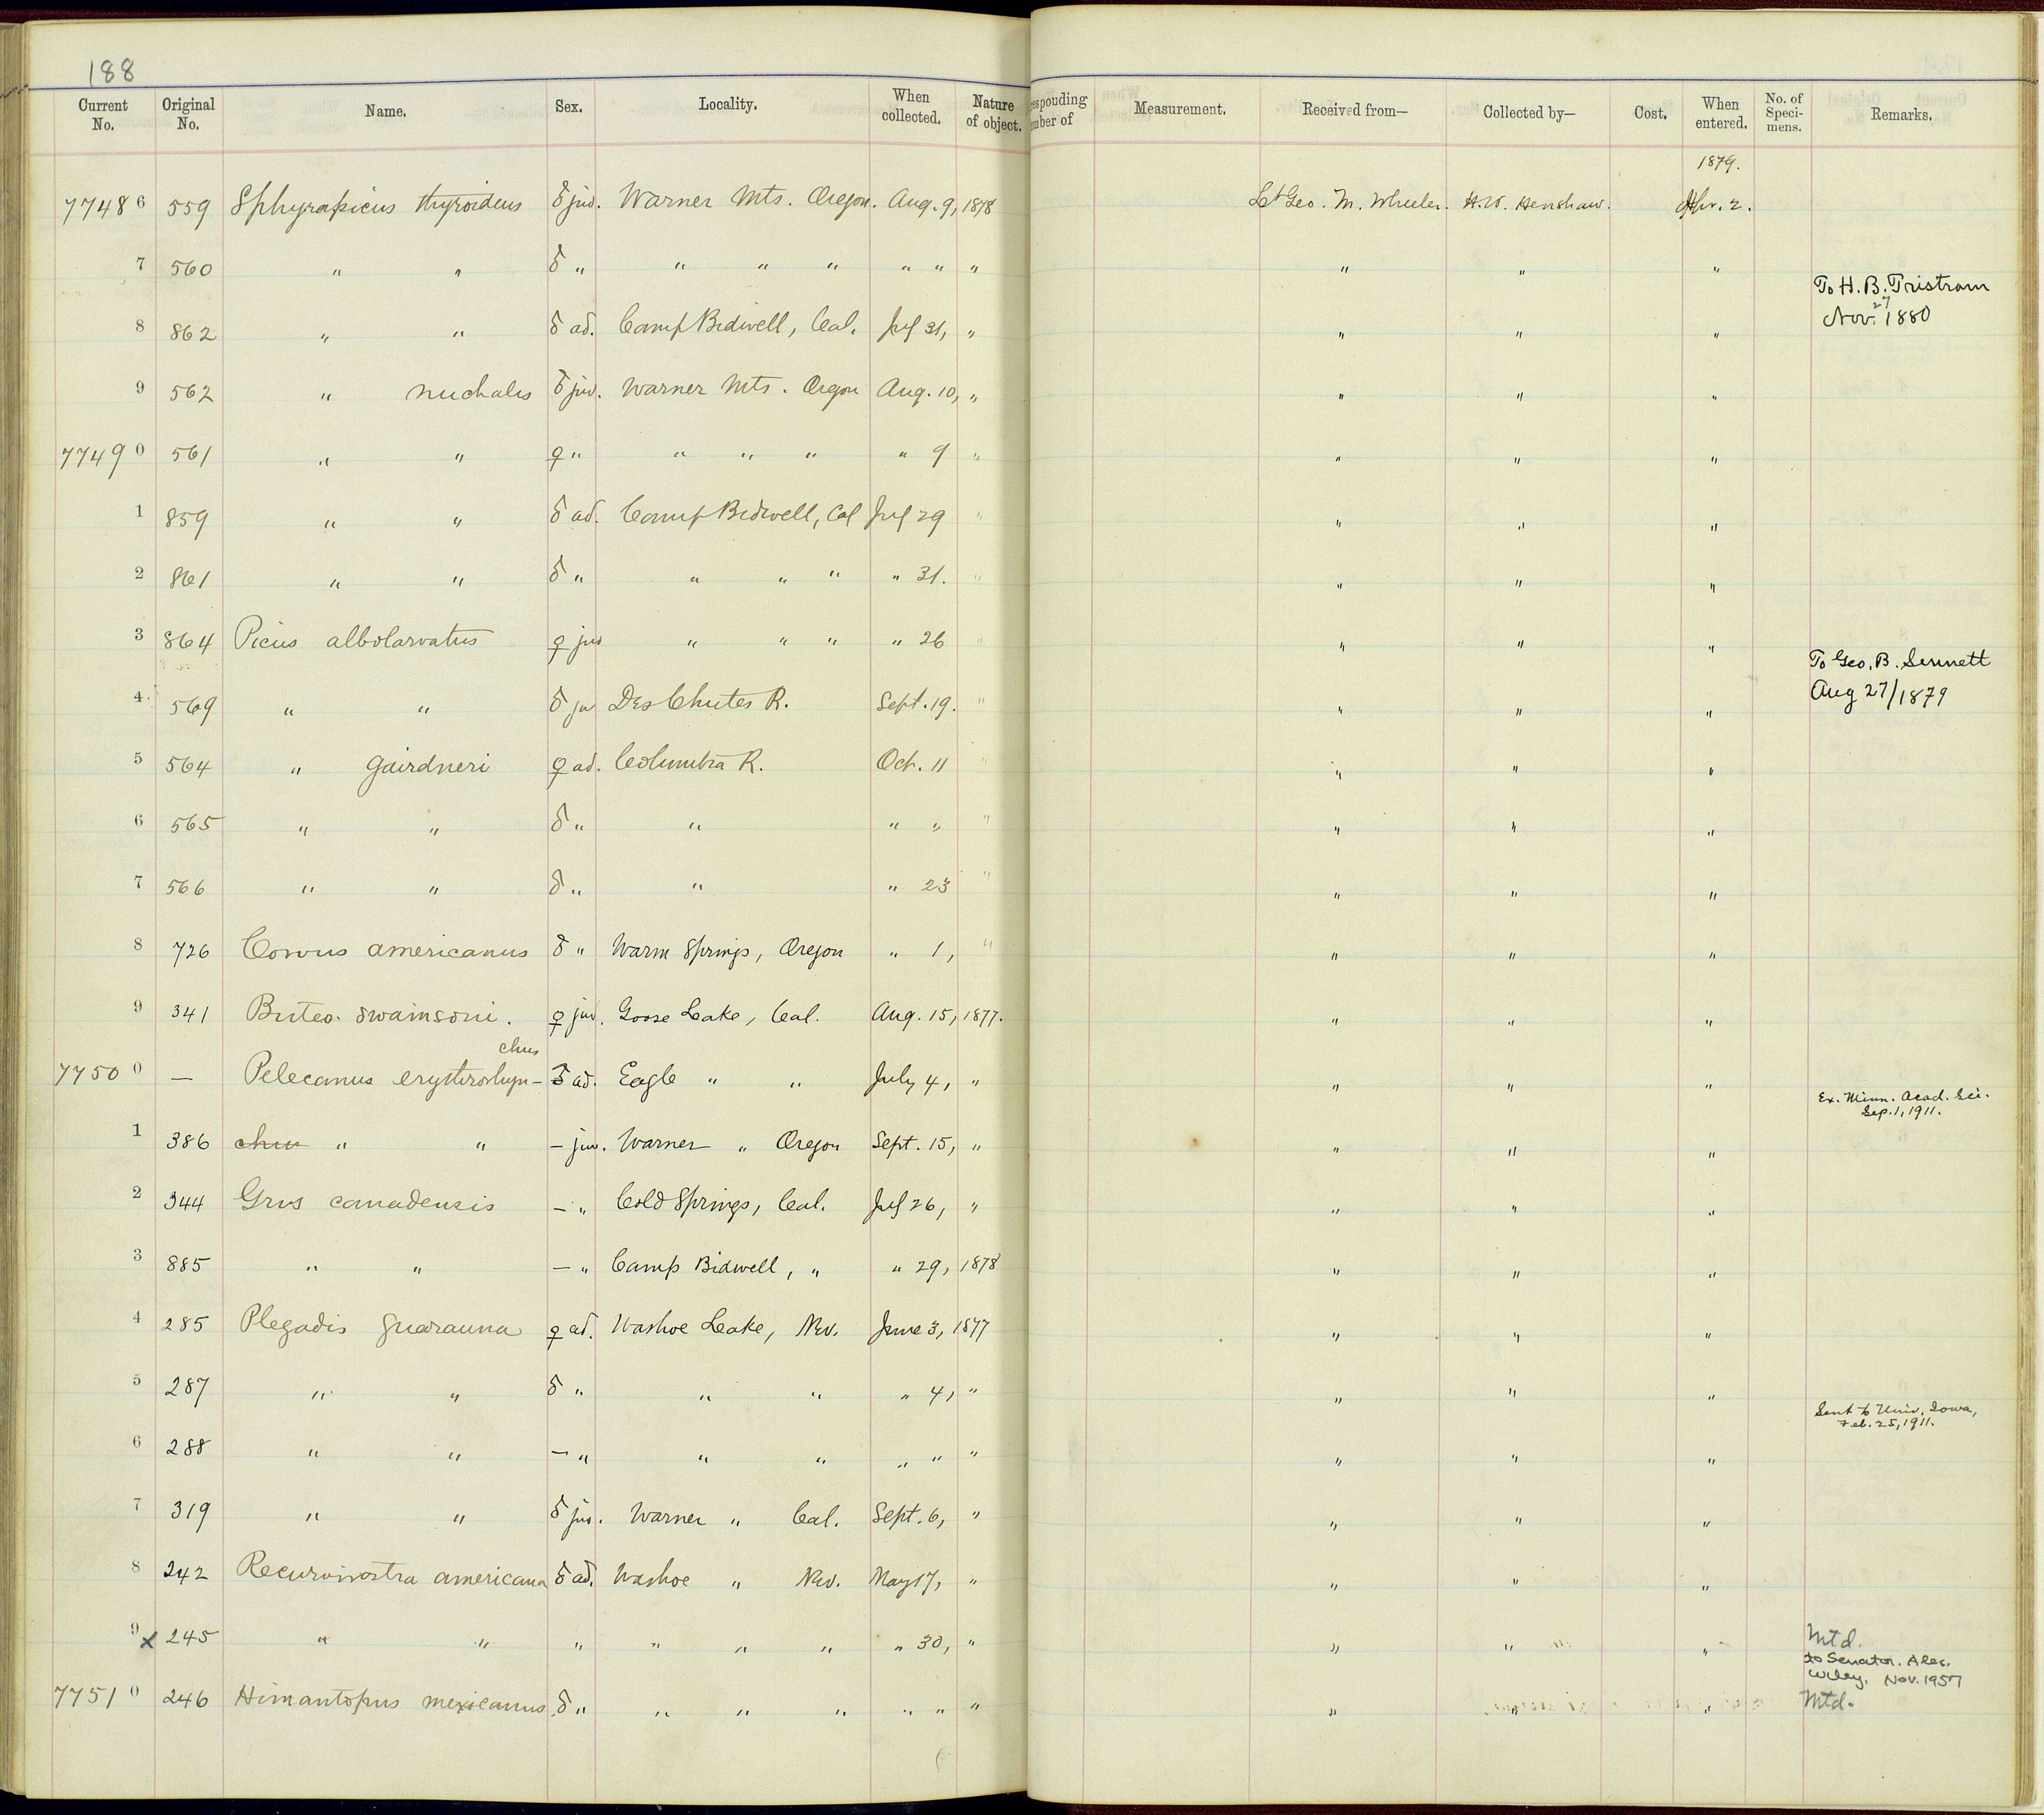 188
Current No. Original No. Name. Sex. Locality. When collected. Nature of object. esponding mber of Measurement. Received from— Collected by— Cost. When entered. No. of Speci-mens. Remarks.
1879.
77486 559 Sphyrapicus thyroideus ♂ juv. Warner Mts. Oregon. Aug. 9, 1878 Lt Geo. M. Wheeler. H. W. Henshaw. Apr. 2.
7 560 " " ♂ " " " " " " " " " " To H. B. Tristram
8 862 " " ♂ ad. Camp Bidwell, Cal. July 31, " " " " Nov. 27 1880
9 562 " nuchalis ♂ juv. Warner Mts. Oregon Aug. 10, " " " "
77490 561 " " ♀ " " " " " 9 " " " "
1 859 " " ♂ ad. Camp Bidwell, Cal July 29 " " " "
2 861 " " ♂ " " " " " 31. " " " "
3 864 Picus albolarvatus ♀ juv " " " " 26 " " " " To Geo. B. Sennett
4 569 " " ♂ ju Des Chutes R. Sept. 19. " " " " Aug 27/1879
5 564 " gairdneri ♀ ad. Columbia R. Oct. 11 " " " "
6 565 " " ♂ " " " " " " " "
7 566 " " ♂ " " " 23 " " " "
8 726 Corvus americanus ♂ " Warm Springs, Oregon " 1, " " " "
9 341 Buteo swainsoni. ♀ juv. Goose Lake, Cal. Aug. 15, 1877. " " "
chus
77500 — Pelecanus erythrorhyn- ♂ ad. Eagle " " July 4, " " " " Ex. Minn. Acad. Sci.
Sep. 1, 1911.
1 386 chus " " — juv. Warner " Oregon Sept. 15, " " " "
2 344 Grus canadensis — " Cold Springs, Cal. July 26, " " " "
3 885 " " — " Camp Bidwell, " " 29, 1878 " " "
4 285 Plegadis guarauna ♀ ad. Washoe Lake, Nev. June 3, 1877 " " "
5 287 " " ♂ " " " " 4, " " " " Sent to Univ. Iowa,
Feb. 25, 1911.
6 288 " " — " " " " " " " " "
7 319 " " ♂ juv. Warner " Cal. Sept. 6, " " " "
8 242 Recurvirostra americana ♂ ad. Washoe " Nev. May 17, " " " "
9 x 245 " " " " " " " 30, " " " " Mtd.
to Senator. Alex.
Wiley. Nov. 1957
77510 246 Himantopus mexicanus ♂ " " " " " " " " " " Mtd.